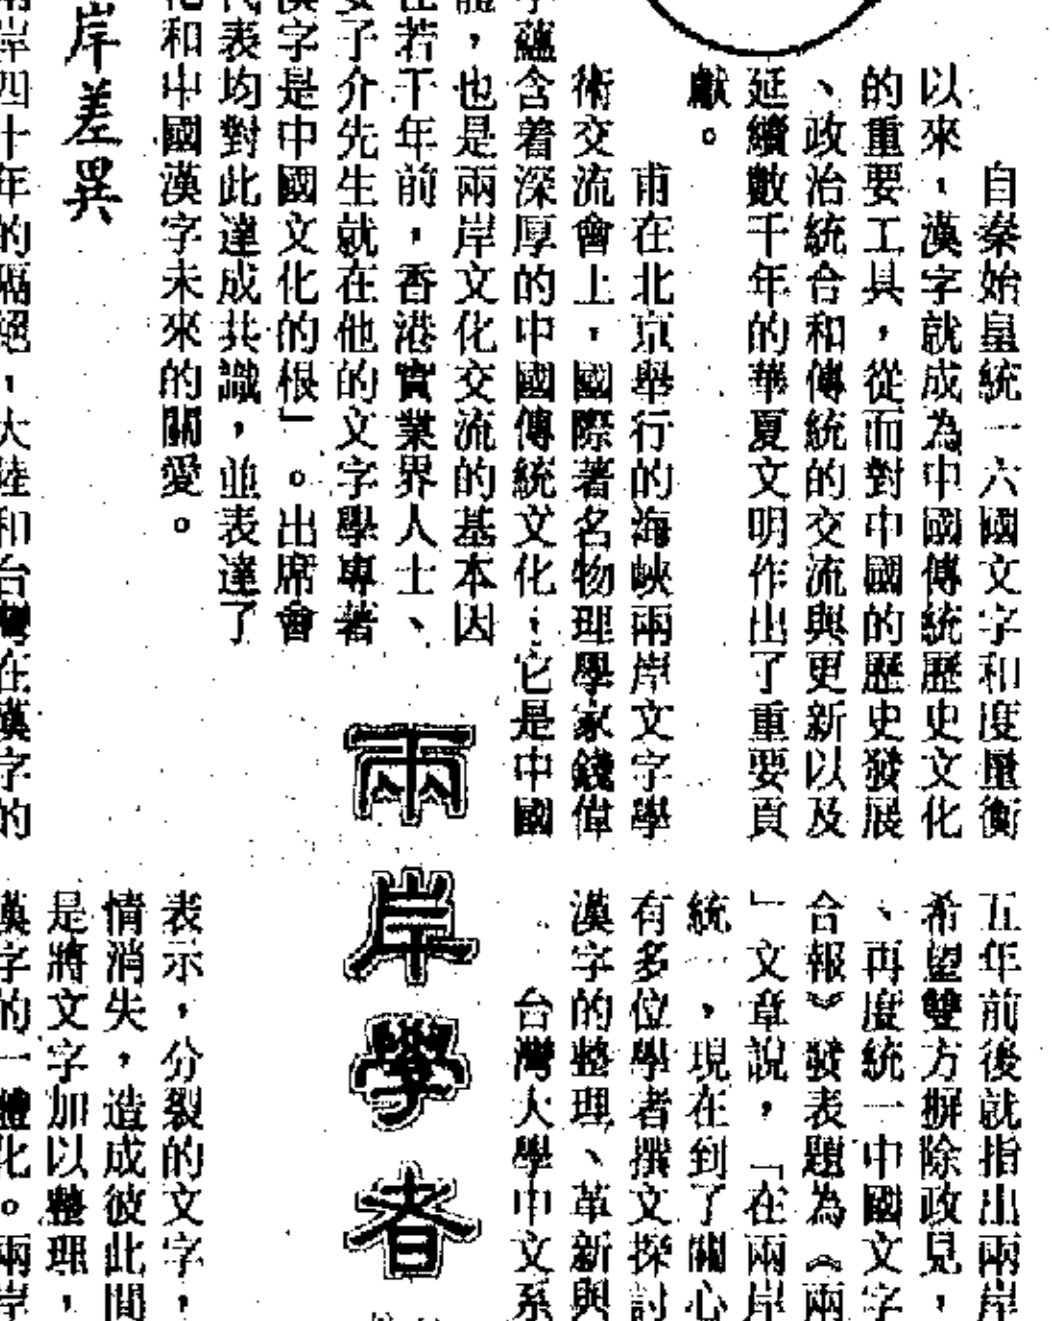 自秦始皇統一六國文字和度量衡
以來，漢字就成為中國傳統歷史文化
的重要工具，從而對中國的歷史發展
、政治統合和傳統的交流與更新以及
延續數千年的華夏文明作出了重要頁
獻。
甫在北京舉行的海峽兩岸文字學
術交流會上，國際著名物理學家錢偉
含着深厚的中國傳統文化；它是中國
，也是兩岸文化交流的基本因
若干年前，香港實業界人士、
了介先生就在他的文字學專著
漢字是中國文化的根」。出席會
代表均對此達成共識，並表達了
和中國漢字未來的關愛。
岸差異
岸四十年的隔絕，大陸和台灣在漢字的
兩岸學者
五年前後就指出兩岸
希望雙方摒除政見，
、再度統一中國文字
合報》發表題為《兩
」文章說，「在兩岸
統一，現在到了關心
有多位學者撰文探討
漢字的整理、革新與
台灣大學中文系
表示，分裂的文字，
情消失，造成彼此間
是將文字加以整理，
漢字的一體化。兩岸